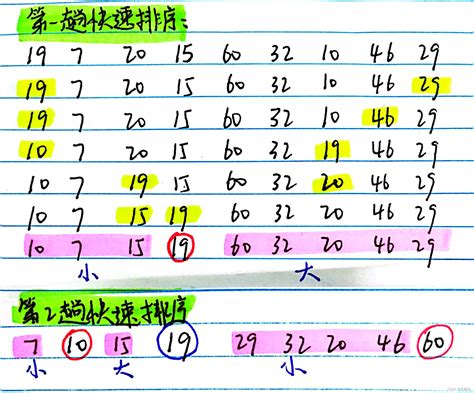 第一趟快速排序:
19 7 20 15 60 32 10 46 29
19 7 20 15 60 32 10 46 29
19 7 20 15 60 32 19 46 29
10 7 20 15 60 32 19 46 29
10 7 19 15 60 32 20 46 29
10 7 15 19 60 32 20 46 29
10 7 15 19 60 32 20 46 29
小 大
第2趟快速排序
7 10 15 19 29 32 20 46 60
小 大 小